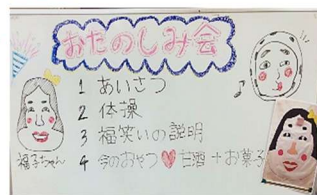 おたのしみ会
1 あいさつ
2 体操
3 福笑いの説明
4 今のおやつ♥甘酒+お菓子
福子ちゃん